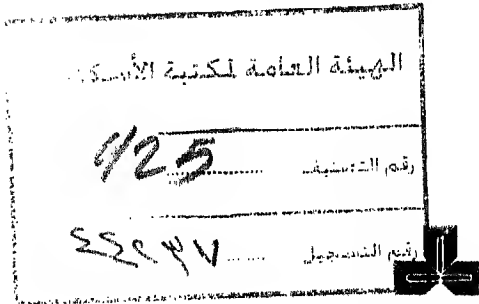 الهيئة العامة لمكتبة الأسكند
رقم التصنيف ........ 925
رقم التسجيل ........ ٤٤٢٣٧